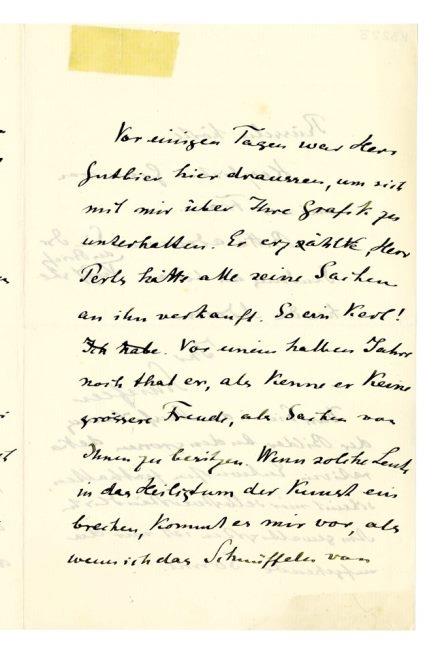 Vor einigen Tagen war Herr
Gutbier hier draussen, um sich
mit mir über Ihre Grafik zu
unterhalten. Er erzählte, Herr
Perls hätte alle seine Sachen
an ihn verkauft. So ein Kerl!
Ich habe. Vor einem halben Jahre
noch that er, als kenne er keine
grössere Freude, als Sachen von
Ihnen zu besitzen. Wenn solche Leute
in das Heiligtum der Kunst ein
brechen, kommt es mir vor, als
wenn ich das Schnüffeln von